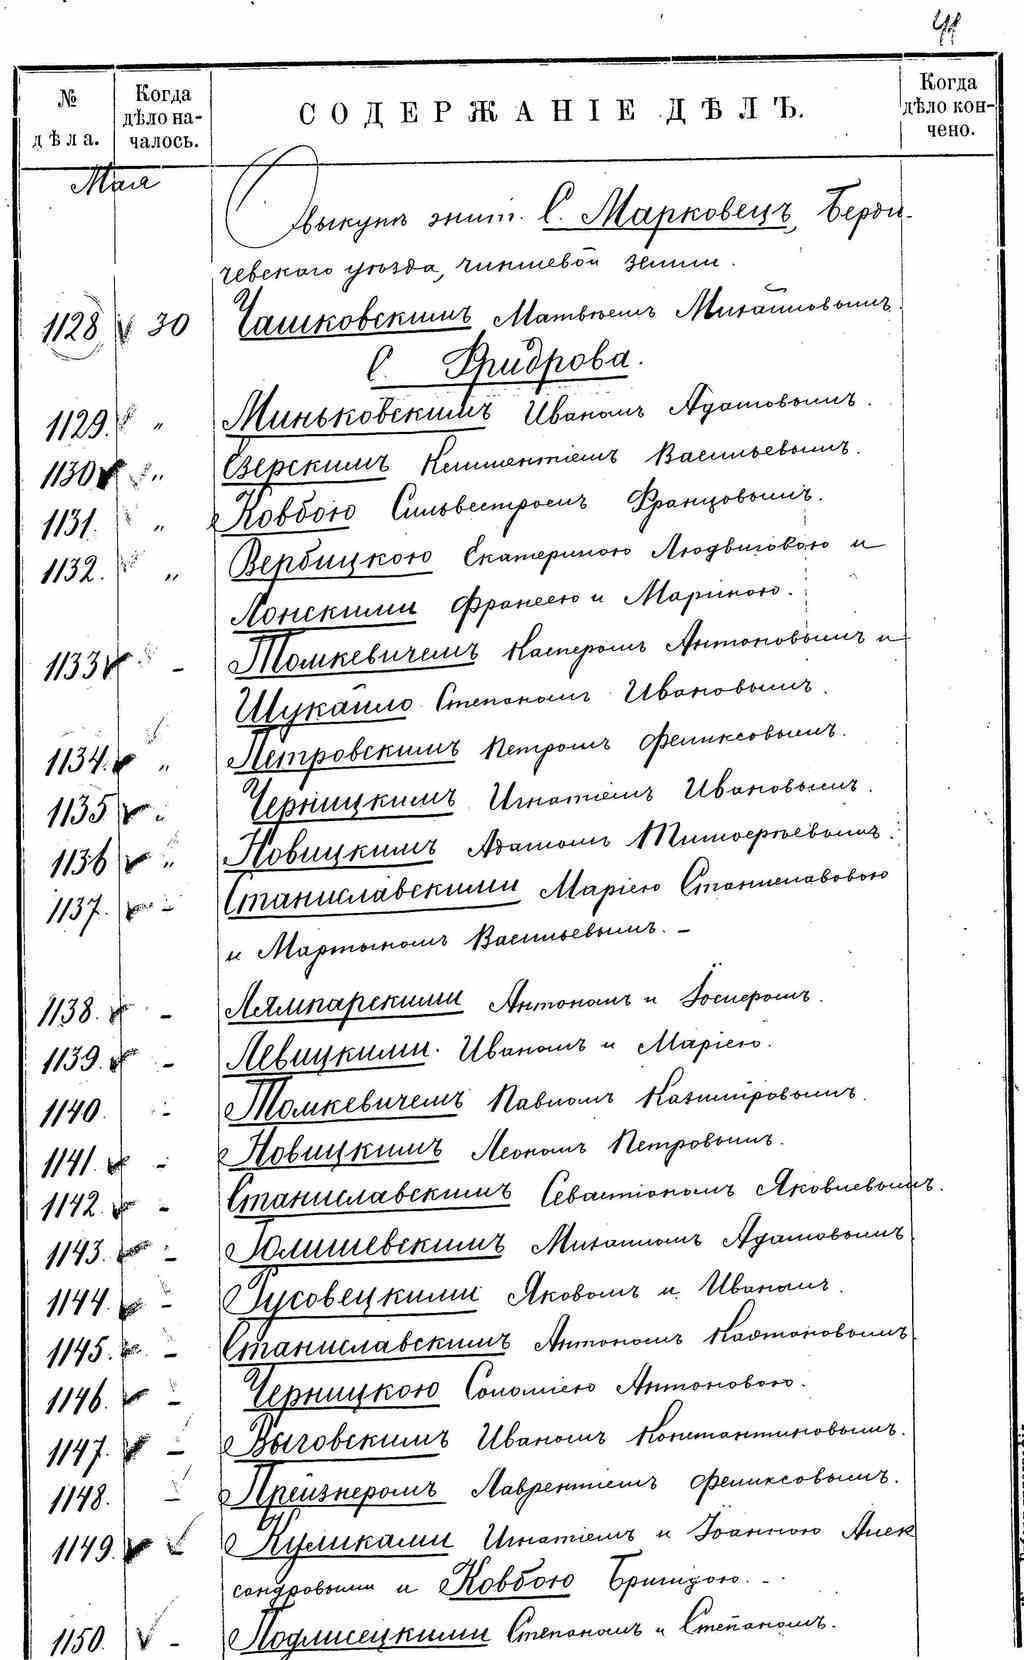 № дѣла.
Когда дѣло началось.
СОДЕРЖАНІЕ ДѢЛЪ.
Когда дѣло кончено.
Мая
О выкупѣ жит. С. Марковецъ, Берди-
чевскаго уѣзда, чиншевой земли.
1128 30 Чашковскимъ Матвѣемъ Михайловымъ.
С. Фридрова.
1129. " Миньковскимъ Иваномъ Адамовымъ.
1130 " Езерскимъ Климентіемъ Васильевымъ.
1131. " Ковбою Сильвестромъ Францовымъ.
1132. " Вербицкою Екатериною Людвиговою и
Лонскими Франсею и Маріною.
1133 - Томкевичемъ Касперомъ Антоновымъ и
Шукайло Степаномъ Ивановымъ.
1134. " Петровскимъ Петромъ Феликсовымъ.
1135 " Черницкимъ Игнатіемъ Ивановымъ.
1136 " Новицкимъ Адамомъ Тимоѳеевымъ.
1137. - Станиславскими Маріею Станиславовою
и Мартыномъ Васильевымъ. -
1138. - Лямпарскими Антономъ и Іосифомъ.
1139. - Левицкими. Иваномъ и Маріею.
1140. - Томкевичемъ Павломъ Казиміровымъ.
1141. - Новицкимъ Леономъ Петровымъ.
1142. - Станиславскимъ Севастіаномъ Яковлевымъ.
1143. - Голишевскимъ Михаиломъ Адамовымъ
1144. - Русовецкими Яковомъ и Иваномъ.
1145. - Станиславскимъ Антономъ Каэтановымъ
1146. - Черницкою Соломіею Антоновою.
1147. - Выговскимъ Иваномъ Константиновымъ.
1148. - Прейзнеромъ Лаврентіемъ Феликсовымъ.
1149. Куликами Игнатіемъ и Іоанною Алек
сандровыми и Ковбою Бригидою. -
1150. - Подлисецкими Степаномъ и Степаномъ.